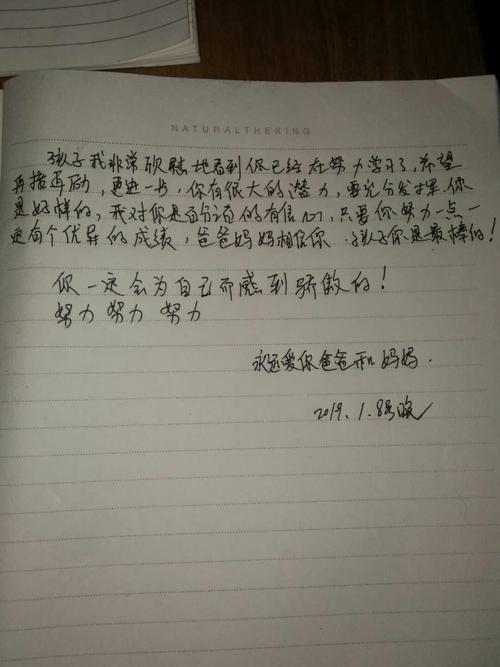 NATURALTHEKING
孩子我非常欣慰地看到你已经在努力学习了,希望
再接再励,更进一步,你有很大的潜力,要充分发挥.你
是好样的,我对你是百分百的有信心,只要你努力一点一
定有个优异的成绩,爸爸妈妈相信你.孩子你是最棒的!
你一定会为自己而感到骄傲的!
努力 努力 努力
永远爱你爸爸和妈妈.
2019.1.8号晚